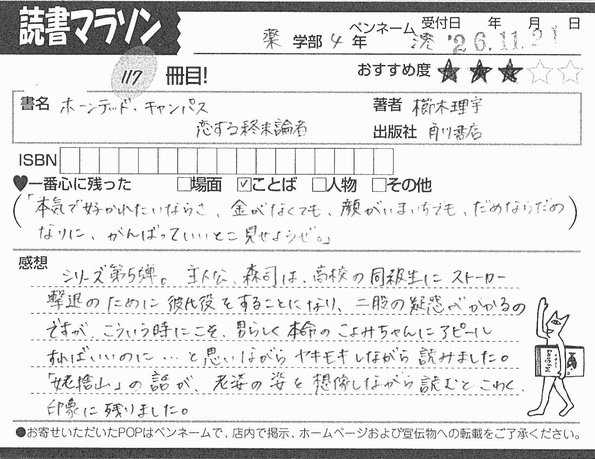 読書マラソン
薬 学部 4 年 ペンネーム 受付日 '26.11.21 年 月 日
117 冊目!
おすすめ度 ★★★☆☆
書名 ホーンテッド・キャンパス
恋する終末論者
著者 櫛木理宇
出版社 角川書店
ISBN
♥一番心に残った □場面 ☑ことば □人物 □その他
(「本気で好かれたいならさ、金がなくても、顔がいまいちでも、だめならだめ
なりに、がんばっていいとこ見せようぜ。」)
感想
シリーズ第5弾。主人公、森司は、高校の同級生にストーカー
撃退のために彼氏役をすることになり、二股の疑惑がかかるの
ですが、こういう時にこそ、男らしく本命のこよみちゃんにアピール
すればいいのに…と思いながらヤキモキしながら読みました。
「姥捨山」の話が、老婆の姿を想像しながら読むとこわく、
印象に残りました。
●お寄せいただいたPOPはペンネームで、店内で掲示、ホームページおよび宣伝物への転載をご了承ください。